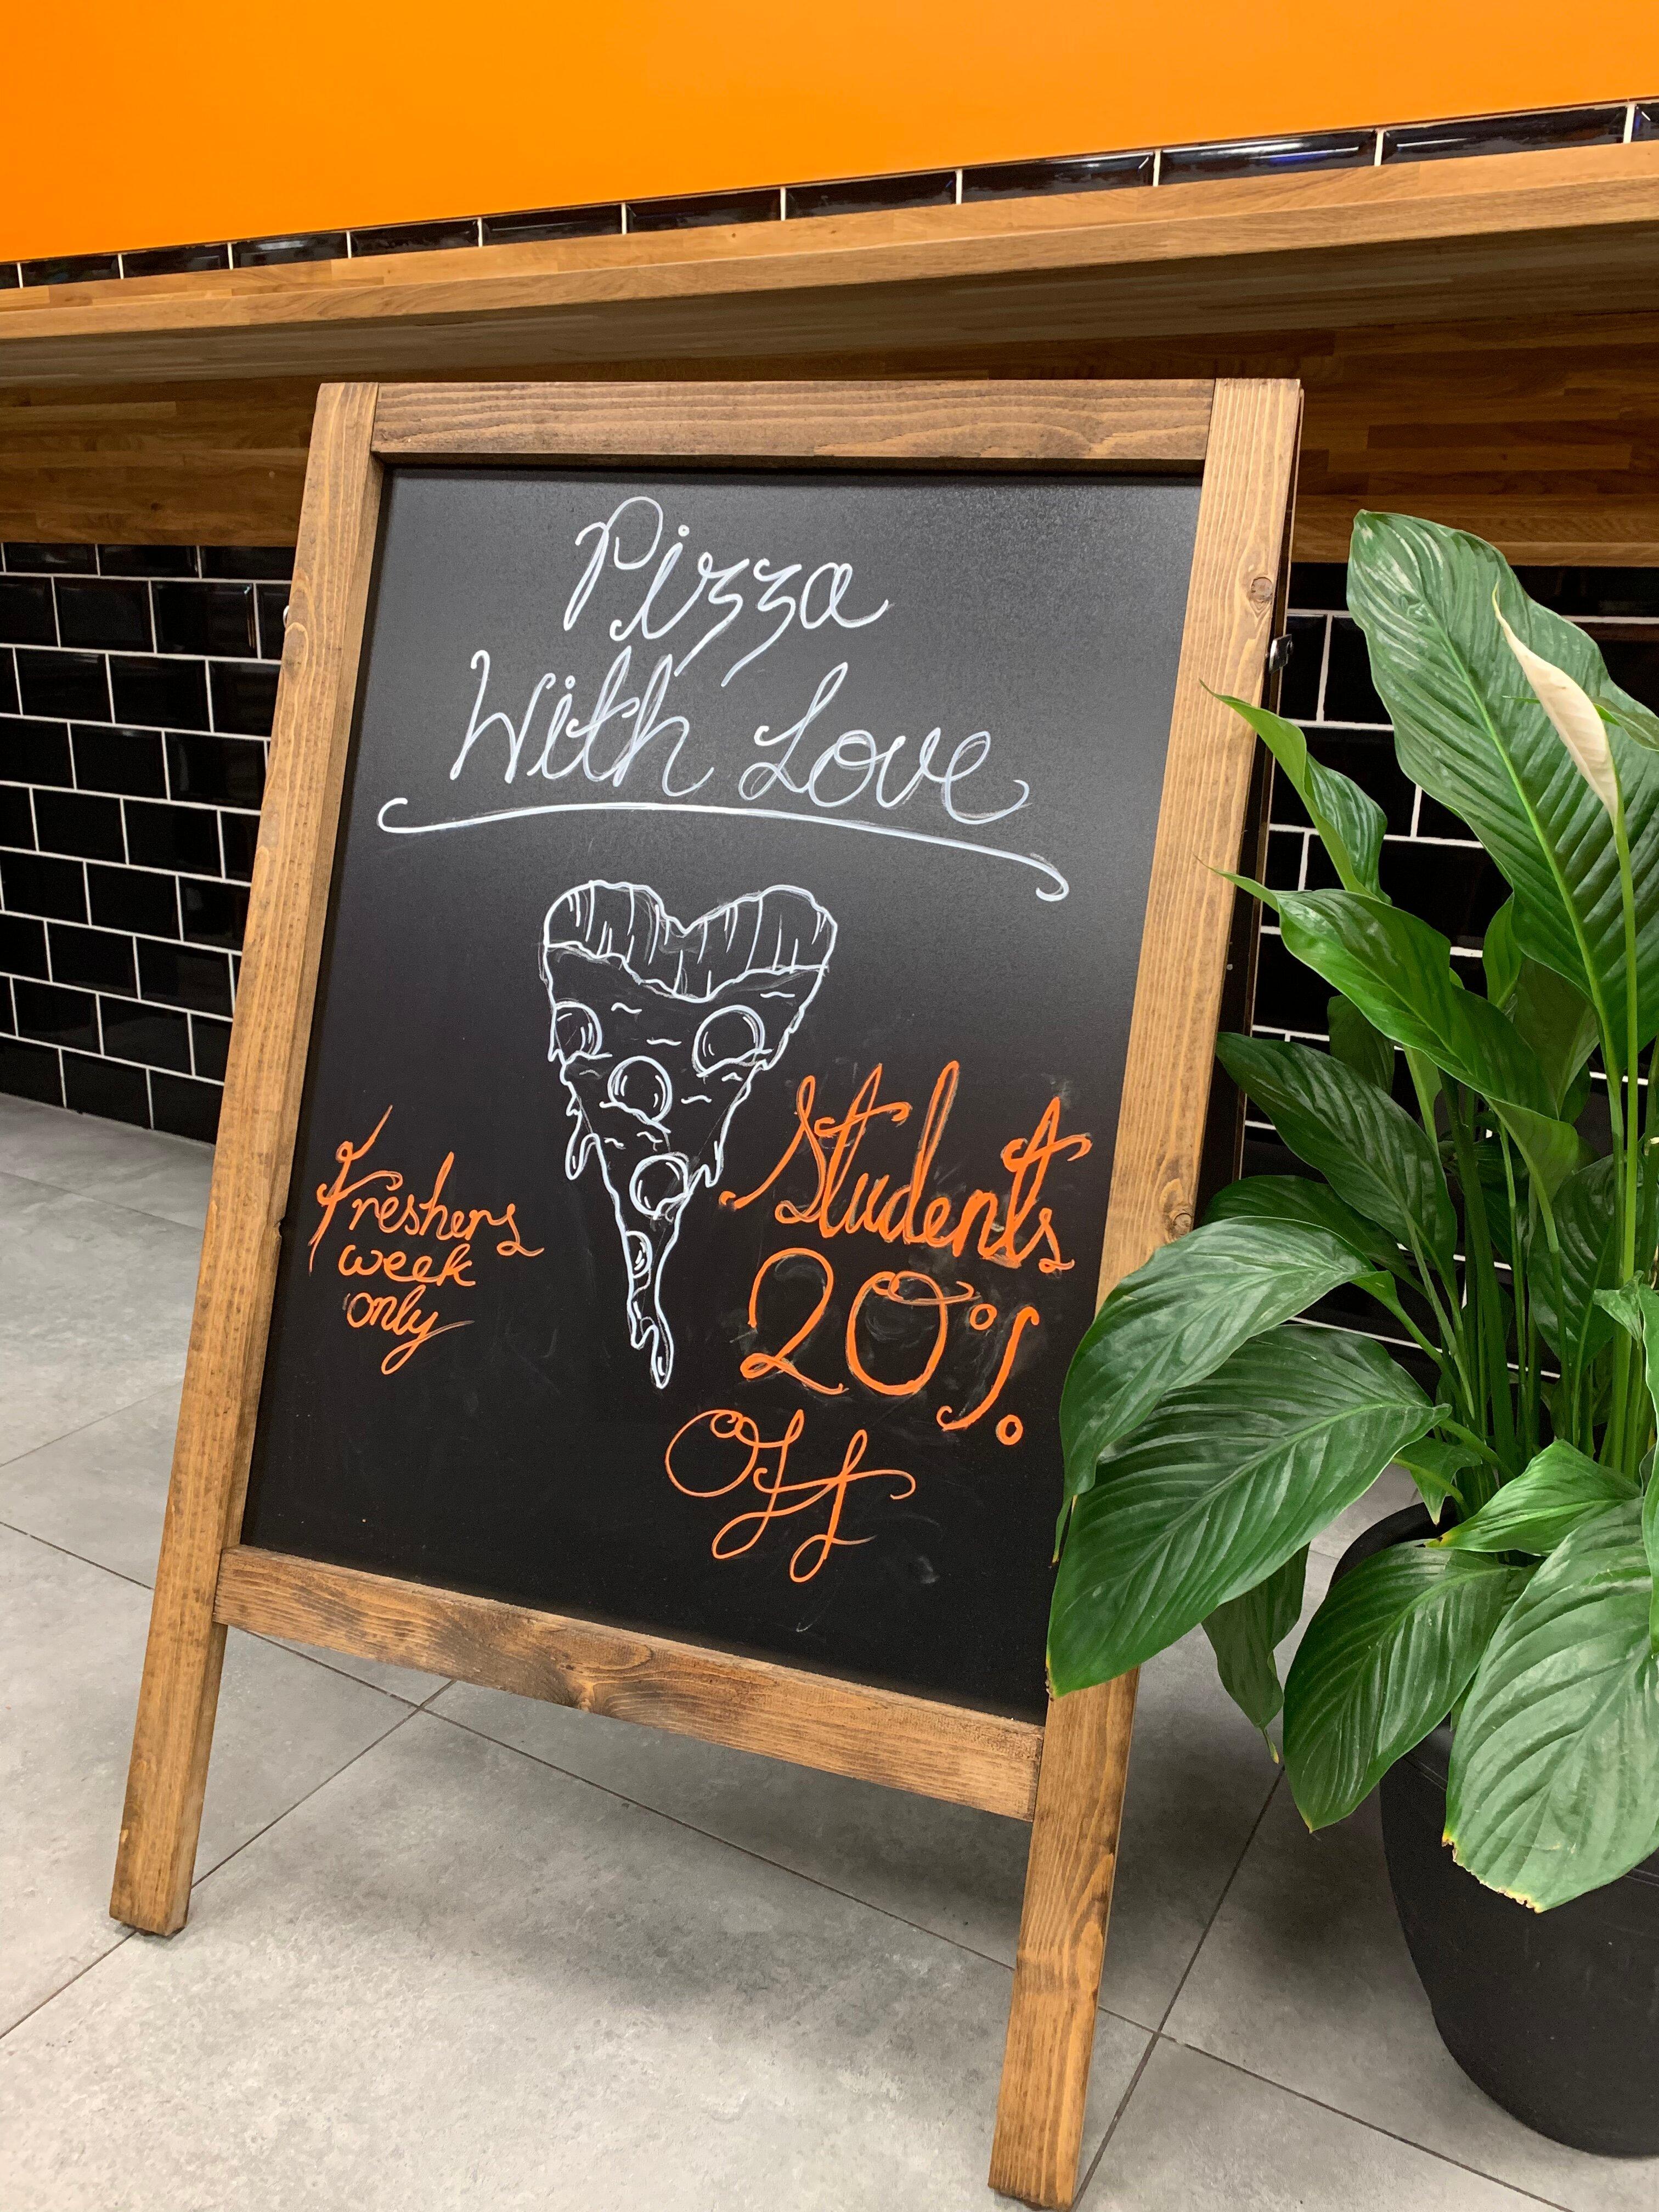 Pizza
With Love
Freshers
week
only
Students
20%
Off